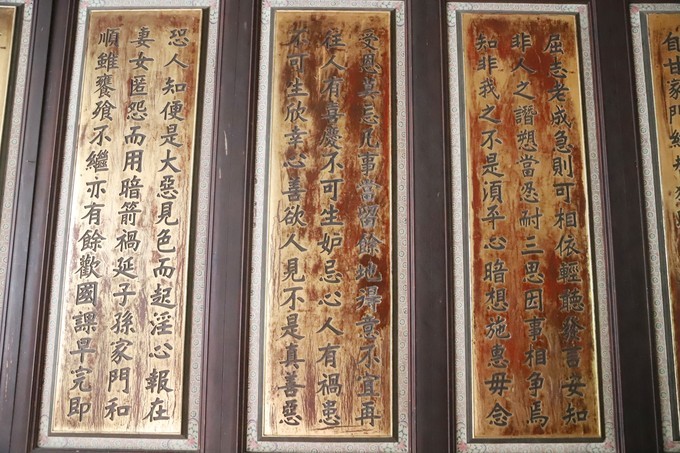 自甘家門
屈志老成急則可相依輕聽發言安知
非人之譖愬當忍耐三思因事相爭焉
知非我之不是須平心暗想施惠毋念
受恩莫忘凡事當留餘地得意不宜再
往人有喜慶不可生妒忌心人有禍患
不可生欣幸心善欲人見不是真善惡
恐人知便是大惡見色而起淫心報在
妻女匿怨而用暗箭禍延子孫家門和
順雖饔飱不繼亦有餘歡國課早完即